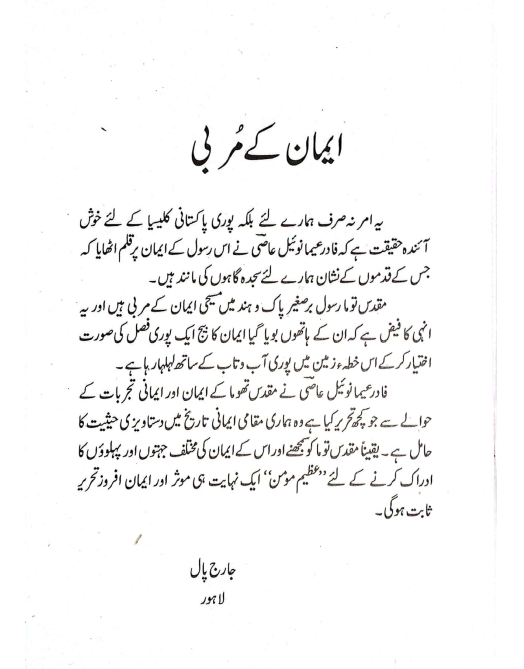 ایمان کے مُربی
یہ امر نہ صرف ہمارے لئے بلکہ پوری پاکستانی کلیسیا کے لئے خوش
آئندہ حقیقت ہے کہ فادر عیمانوئیل عاصیؔ نے اس رسول کے ایمان پر قلم اٹھایا کہ
جس کے قدموں کے نشان ہمارے لئے سجدہ گاہوں کی مانند ہیں۔
مقدس توما رسول برصغیر پاک و ہند میں مسیحی ایمان کے مربی ہیں اور یہ
انہی کا فیض ہے کہ ان کے ہاتھوں بویا گیا ایمان کا بیج ایک پوری فصل کی صورت
اختیار کر کے اس خطہء زمین میں پوری آب و تاب کے ساتھ لہلہا رہا ہے۔
فادر عیمانوئیل عاصیؔ نے مقدس تھوما کے ایمان اور ایمانی تجربات کے
حوالے سے جو کچھ تحریر کیا ہے وہ ہماری مقامی ایمانی تاریخ میں دستاویزی حیثیت کا
حامل ہے۔ یقیناً مقدس توما کو سمجھنے اور اس کے ایمان کی مختلف جہتوں اور پہلوؤں کا
ادراک کرنے کے لئے ”عظیم مومن“ ایک نہایت ہی موثر اور ایمان افروز تحریر
ثابت ہوگی۔
جارج پال
لاہور